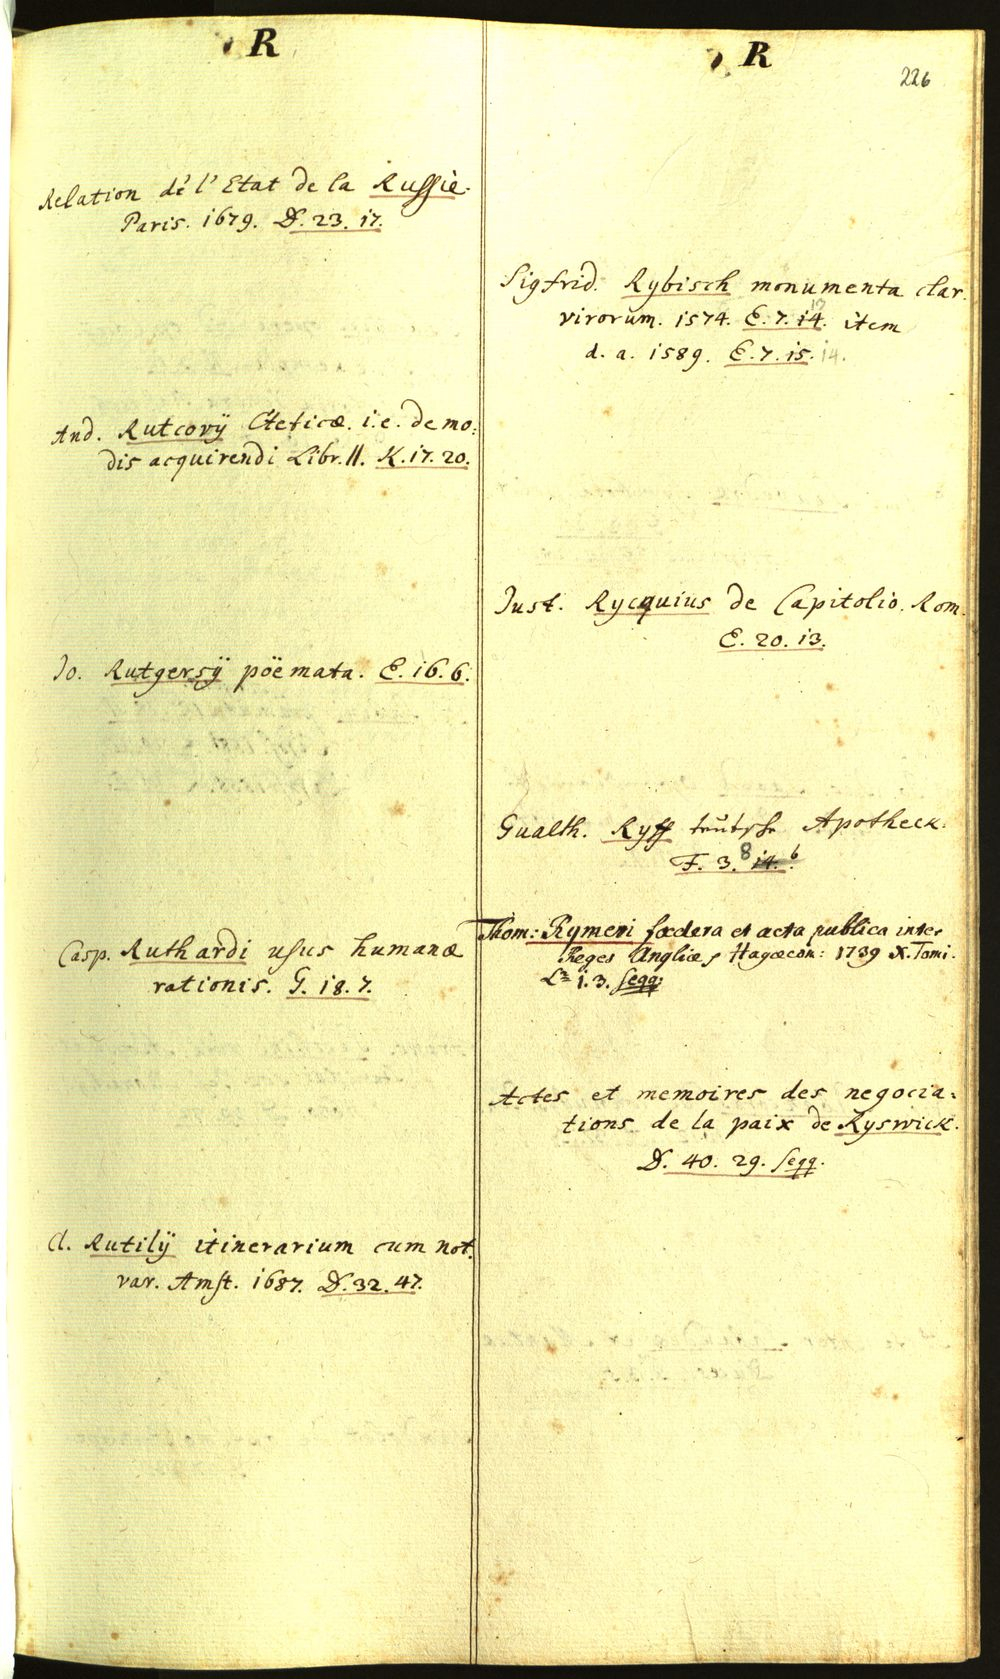 R
Relation de l'Etat de la Russie.
Paris. 1679. D. 23. 17.
And. Rutcovÿ Cteticæ. i. e. de mo:
dis acquirendi Libr. II. K. 17. 20.
Jo. Rutgersÿ poëmata. E. 16. 6.
Casp. Ruthardi usus humanæ
rationis. G. 18. 7.
Cl. Rutilÿ itinerarium cum not.
var. Amst. 1687. D. 32. 47.
R
226
Sigfrid. Rybisch monumenta clar.
virorum. 1574. E. 7. 14. 13 item
d. a. 1589. E. 7. 15. 14.
Just. Rycquius de Capitolio. Rom.
E. 20. 13.
Gualth. Ryff teutsche Apotheck.
F. 3. 8 14. 6
Thom: Rymeri fœdera et acta publica inter
Reges Angliæ, Hagæcom: 1739 X. Tomi.
1. 3. seqq.
Actes et memoires des negocia:
tions de la paix de Ryswick.
D. 40. 29. seqq.